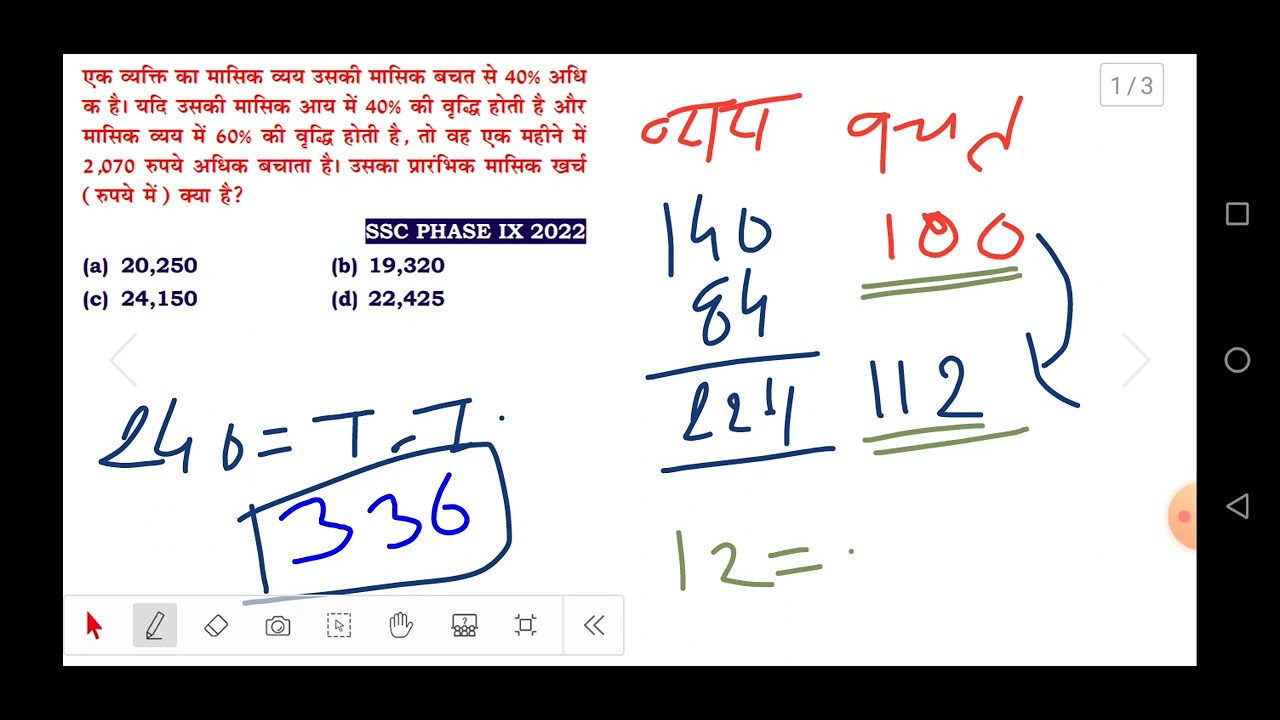 एक व्यक्ति का मासिक व्यय उसकी मासिक बचत से 40% अधि
क है। यदि उसकी मासिक आय में 40% की वृद्धि होती है और
मासिक व्यय में 60% की वृद्धि होती है, तो वह एक महीने में
2,070 रुपये अधिक बचाता है। उसका प्रारंभिक मासिक खर्च
( रुपये में ) क्या है?
SSC PHASE IX 2022
(a) 20,250 (b) 19,320
(c) 24,150 (d) 22,425
240 = T.I.
336
1/3
व्यय बचत
140 100
84
224 112
12 =